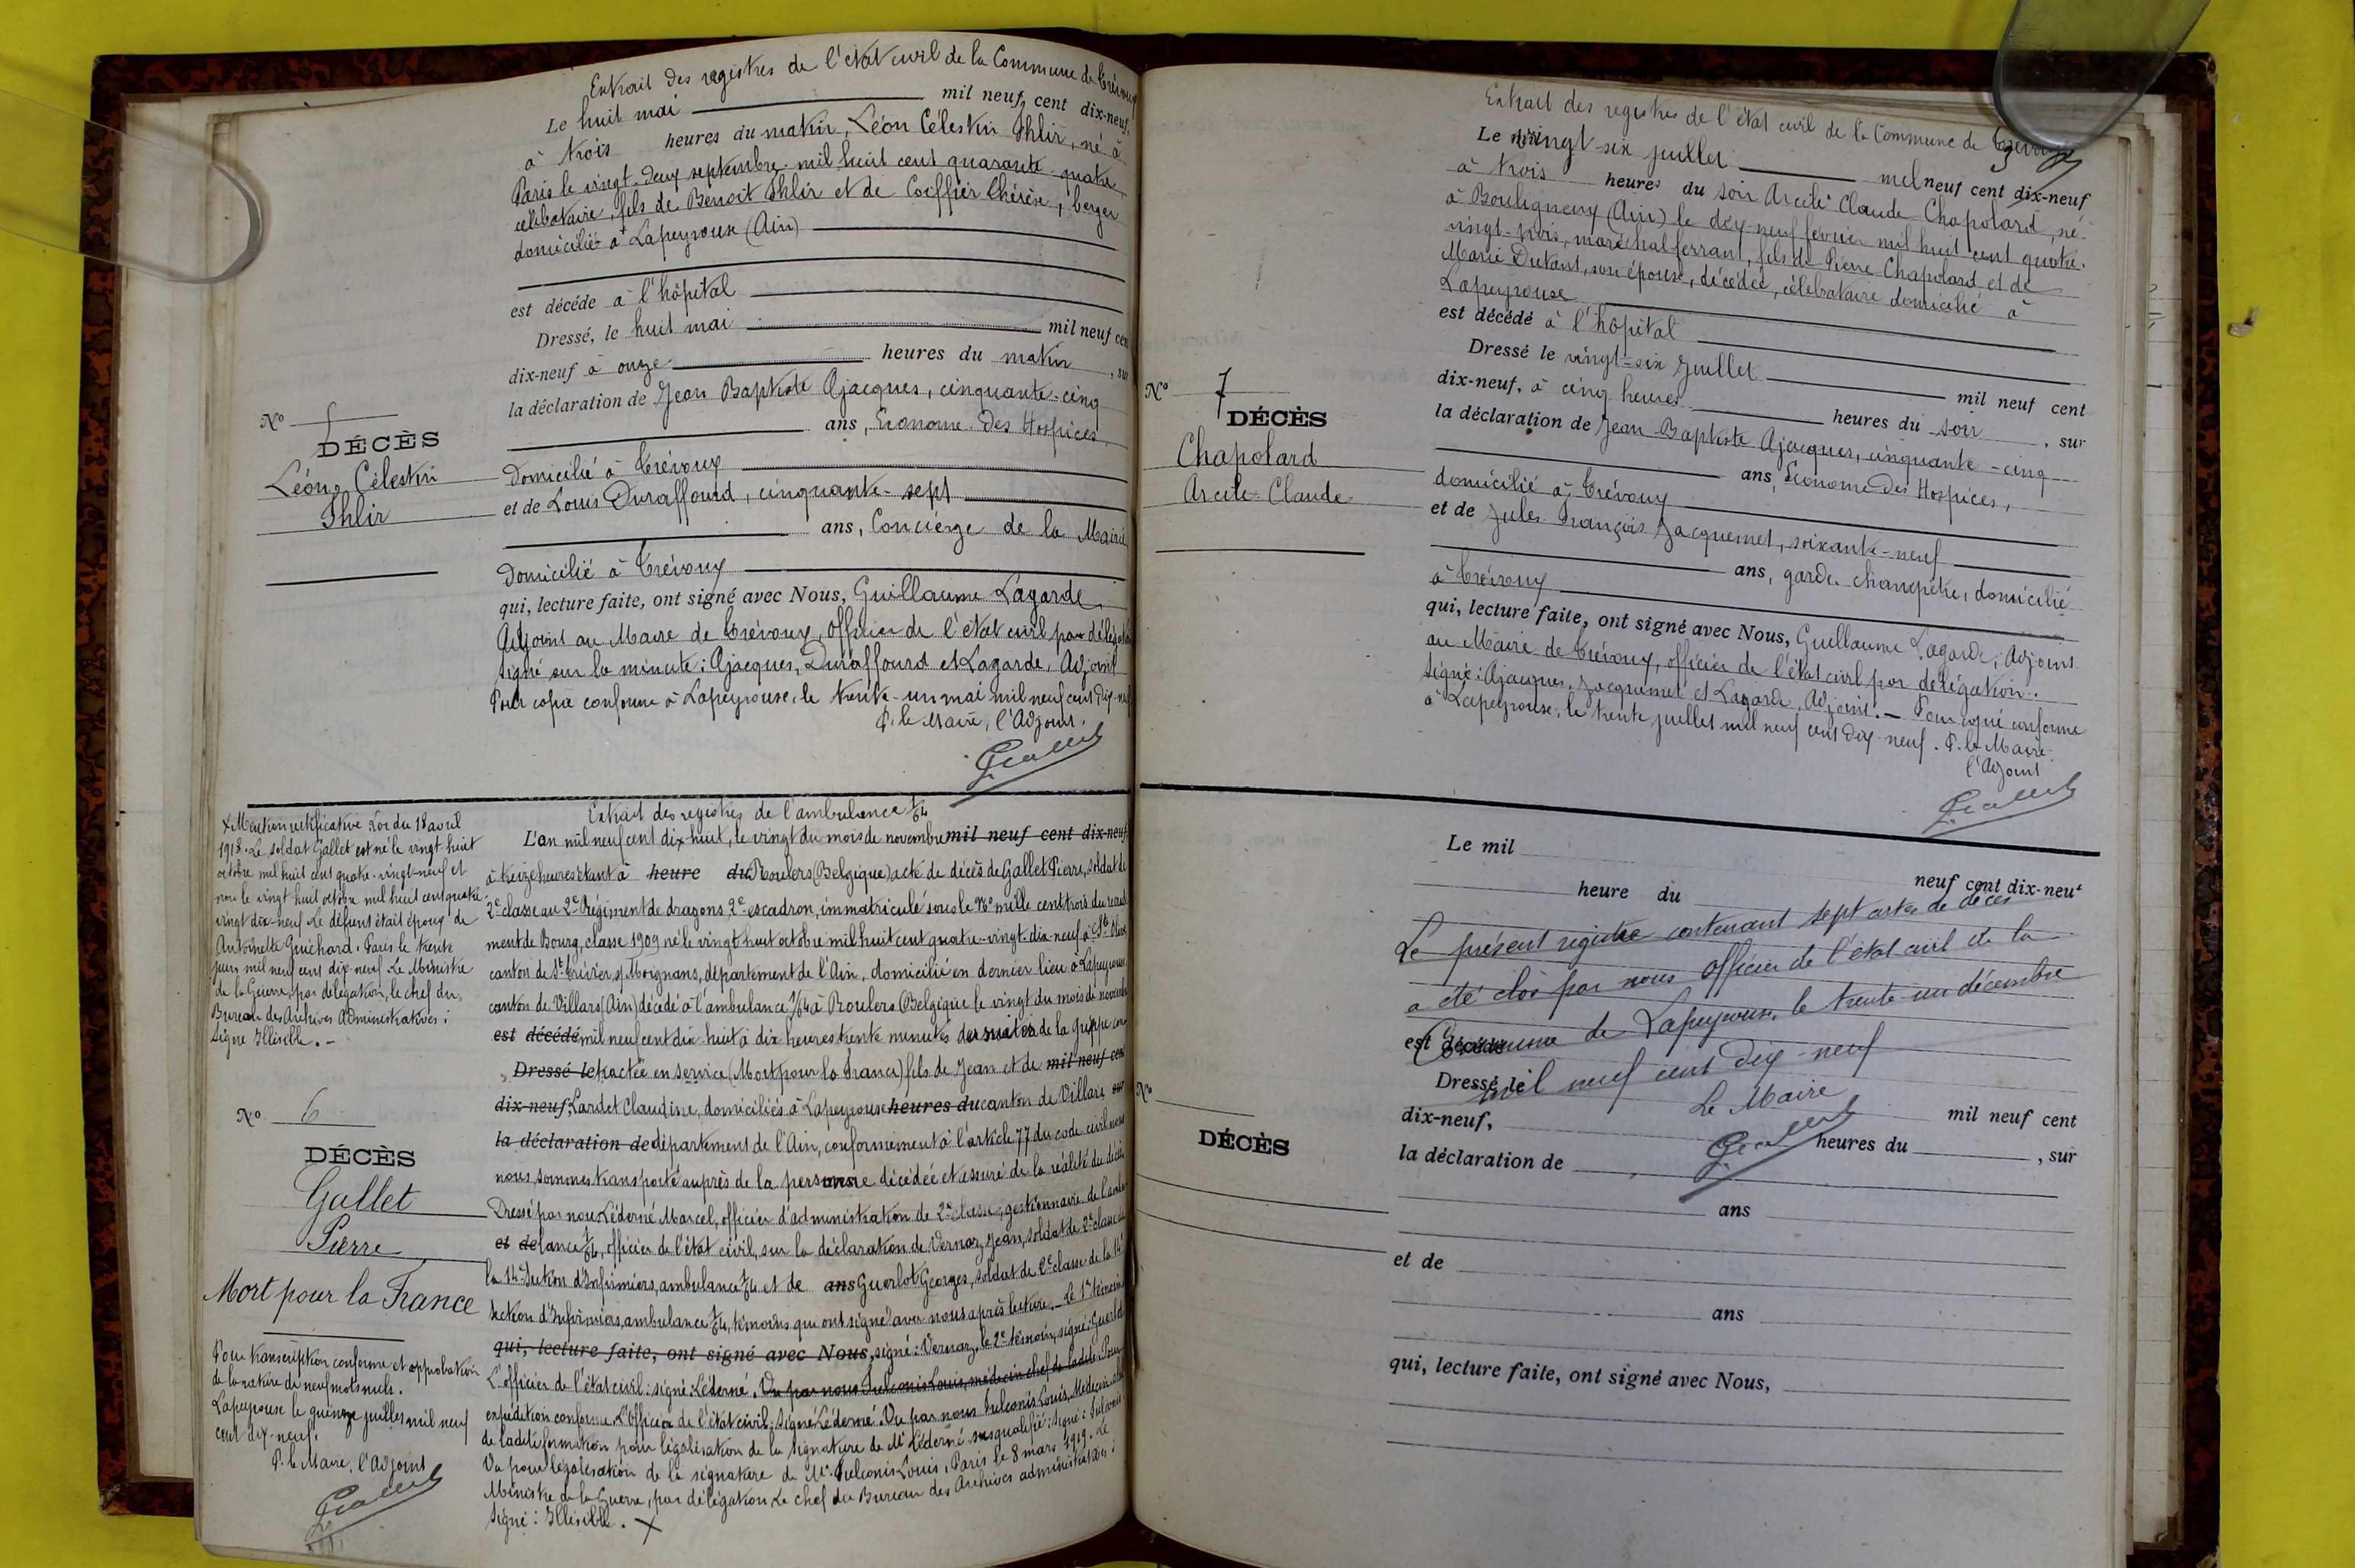 Extrait des registres de l'état civil de la Commune de Trévoux
Le huit mai mil neuf cent dix-neuf,
à trois heures du matin, Léon Célestin Ihlir, né à
Paris le vingt-deux septembre mil huit cent quarante-quatre
célibataire, fils de Benoit Ihlir et de Coiffier Thérèse, berger
domicilié à Lapeyrouse (Ain)
est décédé à l'hôpital
Dressé, le huit mai mil neuf cent
dix-neuf à onze heures du matin, sur
la déclaration de Jean Baptiste Ajacques, cinquante-cinq
ans, Econome des Hospices,
Nº 5
DÉCÈS
Léon Célestin
Ihlir
domicilié à Trévoux
et de Louis Duraffourd, cinquante-sept
ans, Concierge de la Mairie
domicilié à Trévoux
qui, lecture faite, ont signé avec Nous, Guillaume Lagarde,
Adjoint au Maire de Trévoux, officier de l'état civil par délégation
signé sur la minute: Ajacques, Duraffourd et Lagarde, Adjoint
Pour copie conforme à Lapeyrouse, le trente-un mai mil neuf cent dix-neuf
P. le Maire, l'Adjoint.
X Mention rectificative Loi du 18 avril
1918. Le soldat Gallet est né le vingt huit
octobre mil huit cent quatre-vingt-neuf et
non le vingt huit octobre mil huit cent quatre
vingt dix-neuf. Le défunt était époux de
Antoinette Guichard. Paris le trente
juin mil neuf cent dix-neuf Le Ministre
de la Guerre, par délégation, le chef du
Bureau des Archives Administratives:
Signé Illisible. -
Nº 6
DÉCÈS
Gallet
Pierre
Mort pour la France
Pour transcription conforme et approbation
de la rature de neuf mots nuls.
Lapeyrouse le quinze juillet mil neuf
cent dix-neuf.
P. le Maire, l'Adjoint
Extrait des registres de l'ambulance 1/64
L'an mil neuf cent dix-huit, le vingt du mois de novembre mil neuf cent dix-neuf
à treize heures étant à heure du Roulers (Belgique) acte de décès de Gallet Pierre, soldat de
2e classe au 2e Régiment de dragons 2e escadron, immatriculé sous le Nº mille cent trois du recrute
ment de Bourg, classe 1909 né le vingt huit octobre mil huit cent quatre-vingt-dix-neuf à Ste Olive
canton de St Trivier s/ Moignans, département de l'Ain, domicilié en dernier lieu à Lapeyrouse
canton de Villars (Ain) décédé à l'ambulance 1/64 à Roulers (Belgique le vingt du mois de novembre
est décédé mil neuf cent dix-huit à dix heures trente minutes des suites de la grippe con
Dressé le tractée en service (Mort pour la France) fils de Jean et de mil neuf cent
dix-neuf, Lardet Claudine, domiciliés à Lapeyrouse heures du canton de Villars sur
la déclaration de département de l'Ain, conformément à l'article 77 du code civil nous
nous sommes transporté auprès de la personne décédée et assuré de la réalité du décès
Dressé par nous Léderné Marcel, officier d'administration de 2e classe, gestionnaire de l'ambu
et de lance 1/64, officier de l'état civil, sur la déclaration de Vernaz, Jean, soldat de 2e classe à
la 14e Section d'Infirmiers, ambulance 1/64 et de ans Guerlot Georges, soldat de 2e classe de la 14e
section d'Infirmiers, ambulance 1/64, témoins qui ont signé avec nous après lecture. - Le 1er témoin
qui, lecture faite, ont signé avec Nous, signé: Vernaz, le 2e témoin, signé: Guerlot
L'officier de l'état civil: signé: Léderné. Vu par nous Fulconis Louis, médecin chef de ladite. Pour
expédition conforme. L'officier de l'état civil: signé Léderné. Vu par nous Fulconis Louis, Médecin chef
de ladite formation pour légalisation de la signature de Mr Léderné susqualifié: Signé: Fulconis
Vu pour légalisation de la signature de Mr. Fulconis Louis, Paris le 8 mars 1919. Le
Ministre de la Guerre, par délégation, le chef du Bureau des Archives administratives:
Signé: Illisible. X
Extrait des registres de l'état civil de la Commune de Trévoux
3
Le vingt-six juillet mil neuf cent dix-neuf
à trois heures du soir Arcile Claude Chapolard, né
à Bouligneux (Ain) le dix-neuf février mil huit cent quatre-
vingt-trois, maréchal ferrant, fils de Pierre Chapolard et de
Marie Dutant, son épouse, décédée, célibataire domicilié à
Lapeyrouse
est décédé à l'hôpital
Dressé le vingt-six Juillet mil neuf cent
dix-neuf, à cinq heures heures du soir, sur
la déclaration de Jean-Baptiste Ajacques, cinquante-cinq
ans, Econome des Hospices,
Nº 7
DÉCÈS
Chapolard
Arcile Claude
domicilié à Trévoux
et de Jules François Jacquemet, soixante-neuf
ans, garde-champêtre, domicilié
à Trévoux
qui, lecture faite, ont signé avec Nous, Guillaume Lagarde, Adjoint
au Maire de Trévoux, officier de l'état civil par délégation.
Signé: Ajacques, Jacquemet et Lagarde, Adjoint. - Pour copie conforme
à Lapeyrouse, le trente juillet mil neuf cent dix-neuf. P. le Maire
l'Adjoint
Le mil neuf cent dix-neuf
heure du
Le présent registre contenant sept actes de décès
a été clos par nous Officier de l'état civil de la
est décédé
Commune de Lapeyrouse, le trente-un décembre
Dressé, le
mil neuf cent dix-neuf
Le Maire
mil neuf cent
dix-neuf, heures du , sur
la déclaration de
Nº
DÉCÈS
ans
et de
ans
qui, lecture faite, ont signé avec Nous,